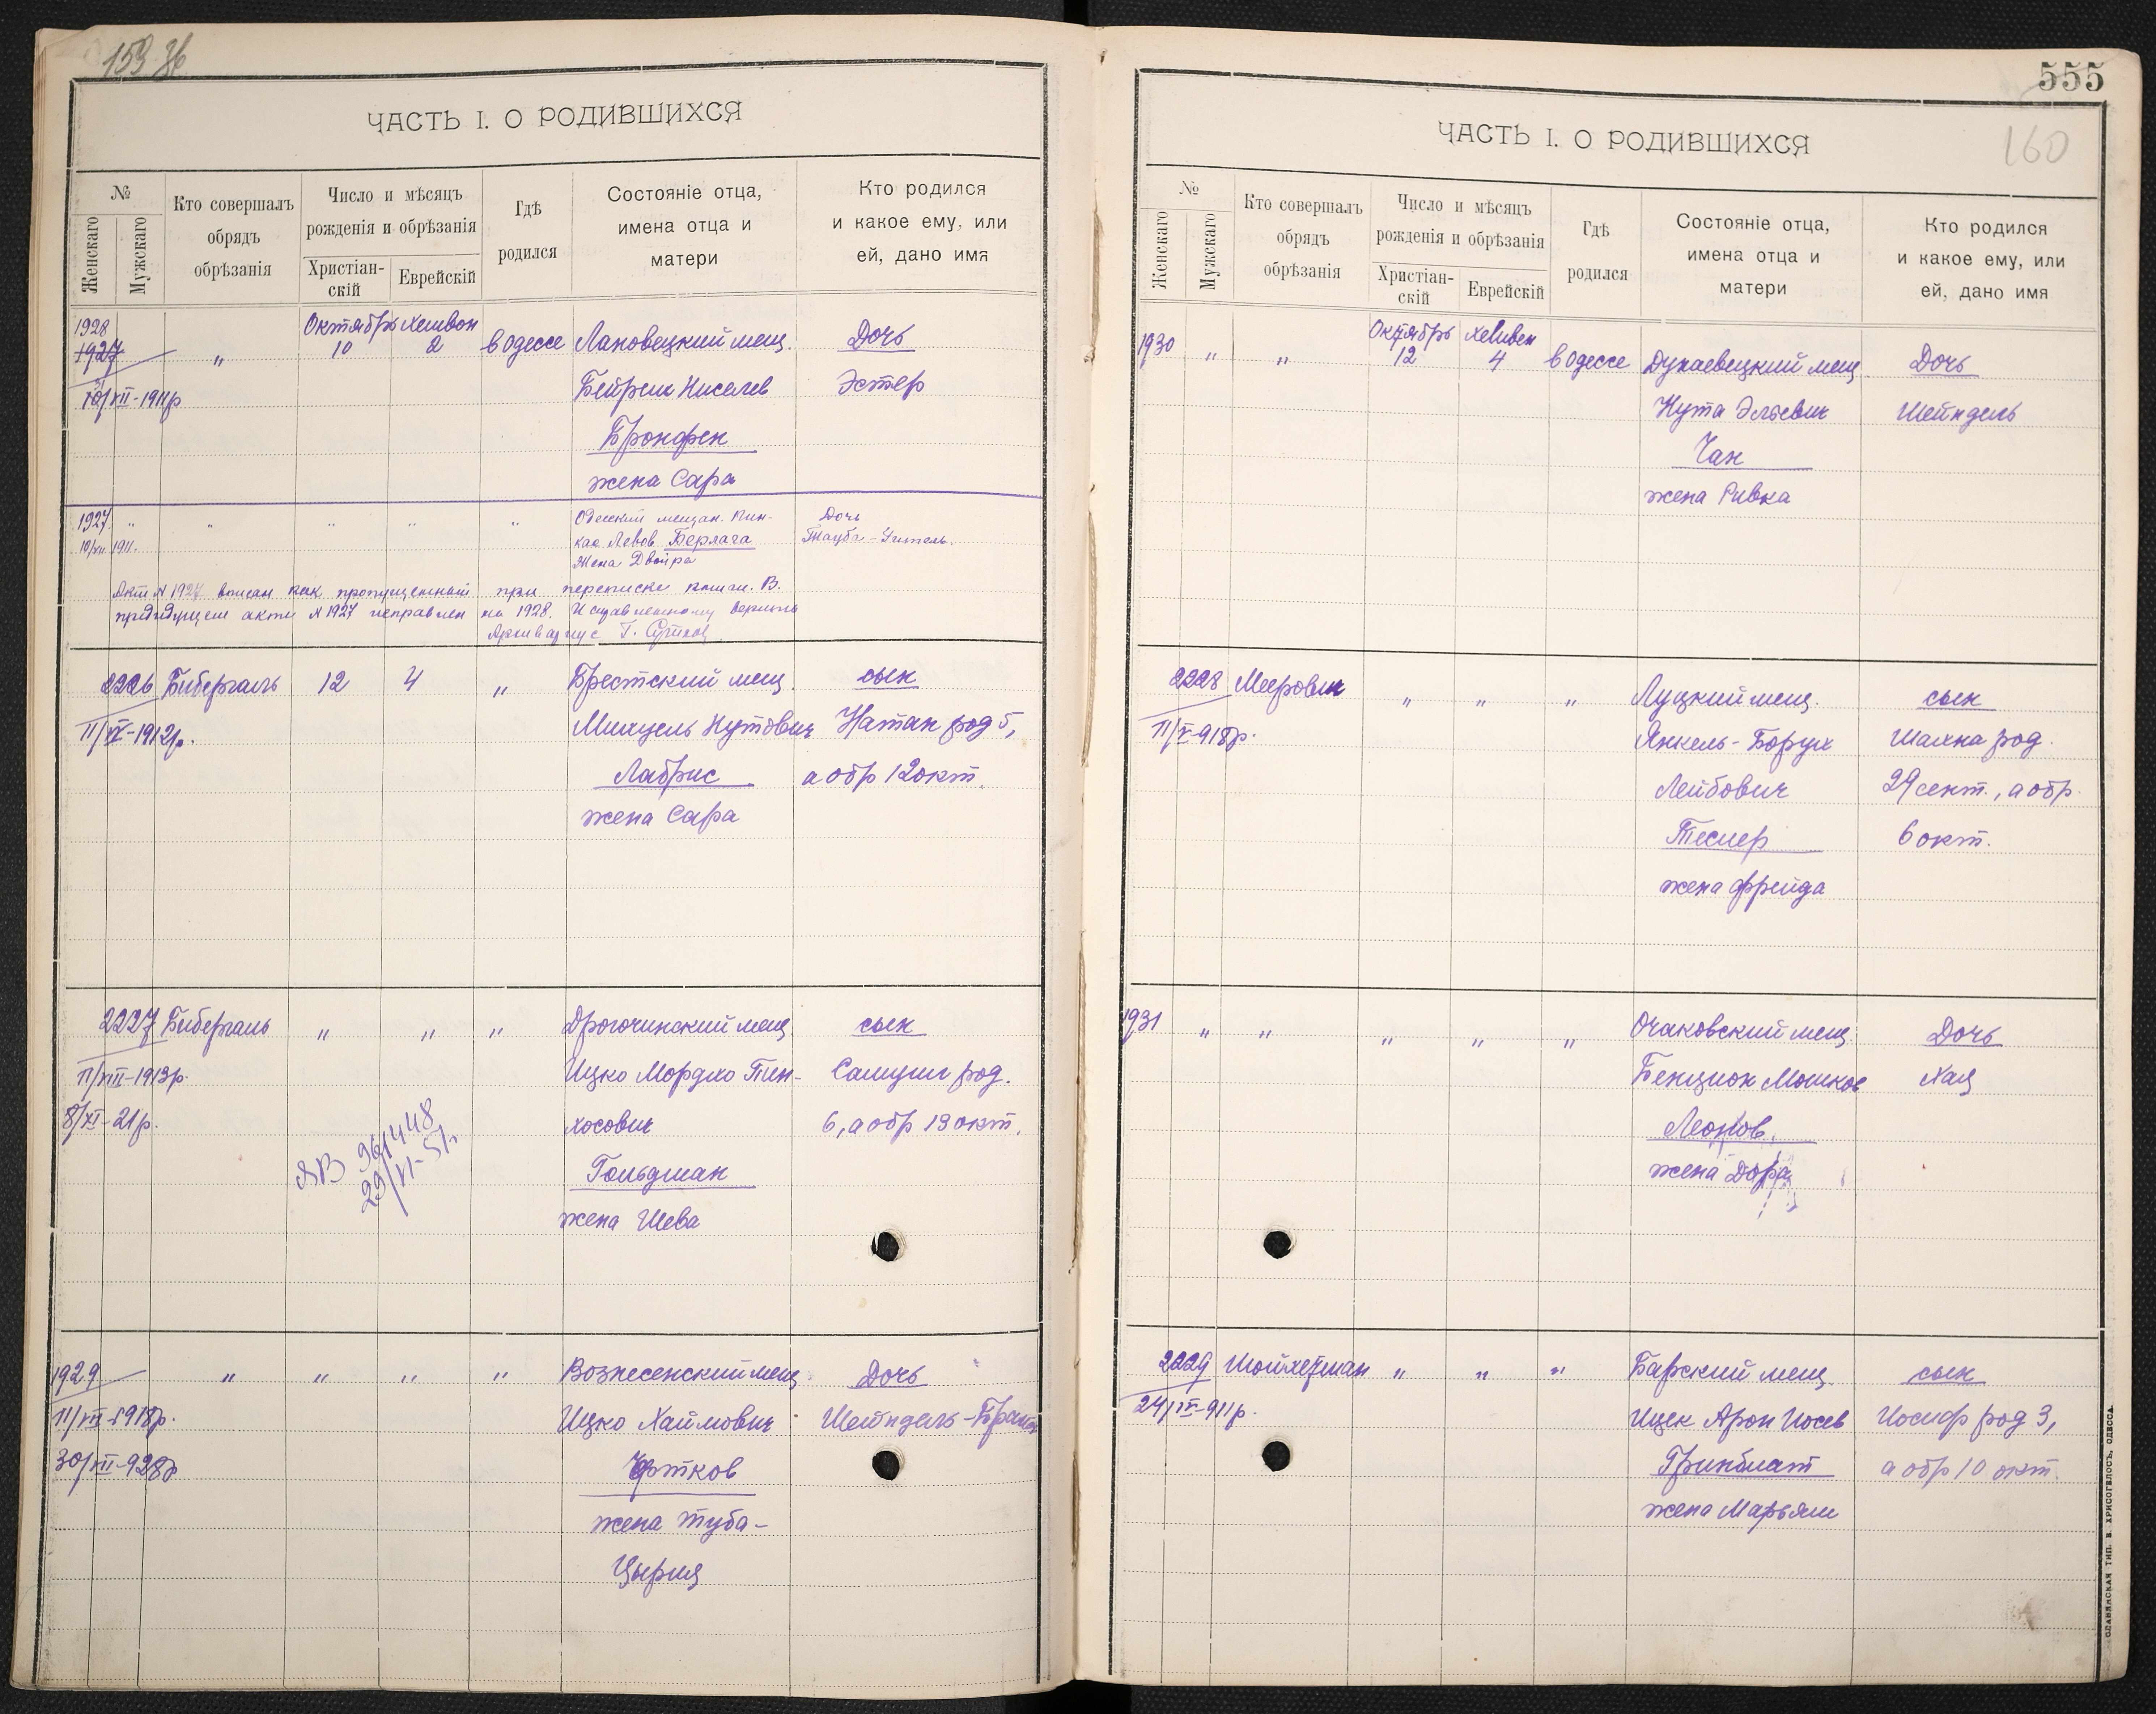 159 об
ЧАСТЬ I. О РОДИВШИХСЯ
№
Женскаго
Мужскаго
Кто совершалъ
обрядъ
обрѣзанія
Число и мѣсяцъ
рожденія и обрѣзанія
Христіан-
скій
Еврейскій
Гдѣ
родился
Состояніе отца,
имена отца и
матери
Кто родился
и какое ему, или
ей, дано имя
1928
1927 " Октябрь 10 Хешвон 2 в Одессе Лановецкий мещ. Дочь
/XII-1911р Бейриш Киселев Эстер
Бронфен
жена Сара
1927 " " " " " Одесский мещан. Пин- Дочь
10/XII 1911. кас Левов Берлага Тауба-Гитель.
Жена Двойра
Акт N 1927 вписан как пропущенный при переписке книги. В
предидущем акте N 1927 исправлен на 1928. Исправленному верить
Архивариус Г.
2226 Бибергаль 12 4 " Брестский мещ. сын
11/IX-1912р. Михцель Нутович Натан род 5,
Лабрис а обр 12 окт.
жена Сара
2227 Бибергаль " " " Дрогочинский мещ. сын
11/VIII-1913р. Ицко Мордко Пин- Самуил род.
8/XI-21р. хосович 6, а обр 13 окт.
ЯВ 961448
29/VI-51г.
Гольдман
жена Шева
1929 " " " " Вознесенский мещ. Дочь
11/VII-1918р. Ицко Хаимович Шейндель-
30/XII-928р Чертков
жена Туба-
Цырия
555
160
ЧАСТЬ I. О РОДИВШИХСЯ
№
Женскаго
Мужскаго
Кто совершалъ
обрядъ
обрѣзанія
Число и мѣсяцъ
рожденія и обрѣзанія
Христіан-
скій
Еврейскій
Гдѣ
родился
Состояніе отца,
имена отца и
матери
Кто родился
и какое ему, или
ей, дано имя
1930 " " Октябрь 12 Хешвен 4 в Одессе Дунаевецкий мещ. Дочь
Нута Эльевич Шейндель
Чан
жена Ривка
2228 Меерович " " " Луцкий мещ. сын
11/V-918р. Янкель-Борух Шахна род.
Лейбович 29 сент., а обр.
Теслер 6 окт.
жена Фрейда
1931 " " " " " Очаковский мещ. Дочь
Бенцион Мошков Хая
Леонов.
жена Дора
2229 Шойхетман " " " Барский мещ. сын
24/IV-911р. Ицек Арон Иосев Иосиф род 3,
Гринблат а обр 10 окт.
жена Марьям
СЛАВЯНСКАЯ ТИП. Н. ХРИСОГЕЛОСЪ, ОДЕССА.